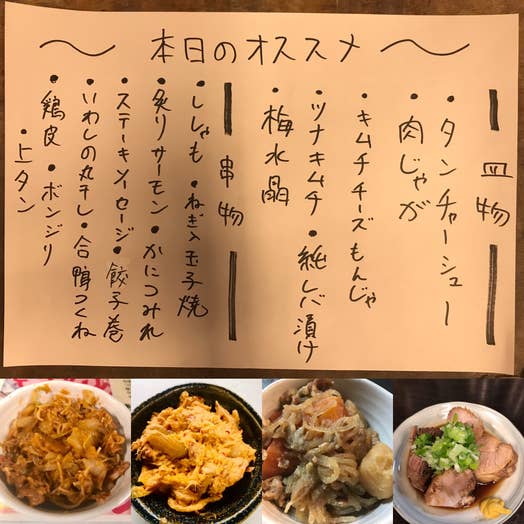 〜 本日のオススメ 〜
皿物
・タンチャーシュー
・肉じゃが
・キムチチーズもんじゃ
・ツナキムチ ・純レバ漬け
・梅水晶
串物
・ししゃも ・ねぎ入玉子焼
・炙りサーモン ・かにつみれ
・ステーキソーセージ ・餃子巻
・いわしの丸干し ・合鴨つくね
・鶏皮 ・ボンジリ
・上タン